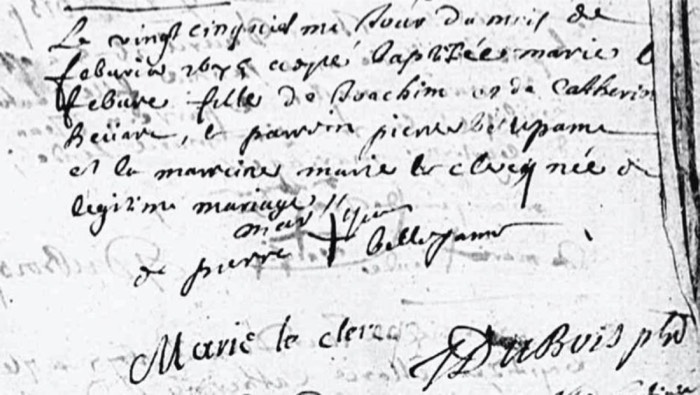 Le vingt cinquiel me Jour du mois de
feburier 1675 a esté baptisée marie l
febure fille de Joachim et de Catherin
le parrin pierre
et la marine marie le clercq née de
legitime mariage
marque
de pierre Belle Jame
Marie le clerc DuBois pbr